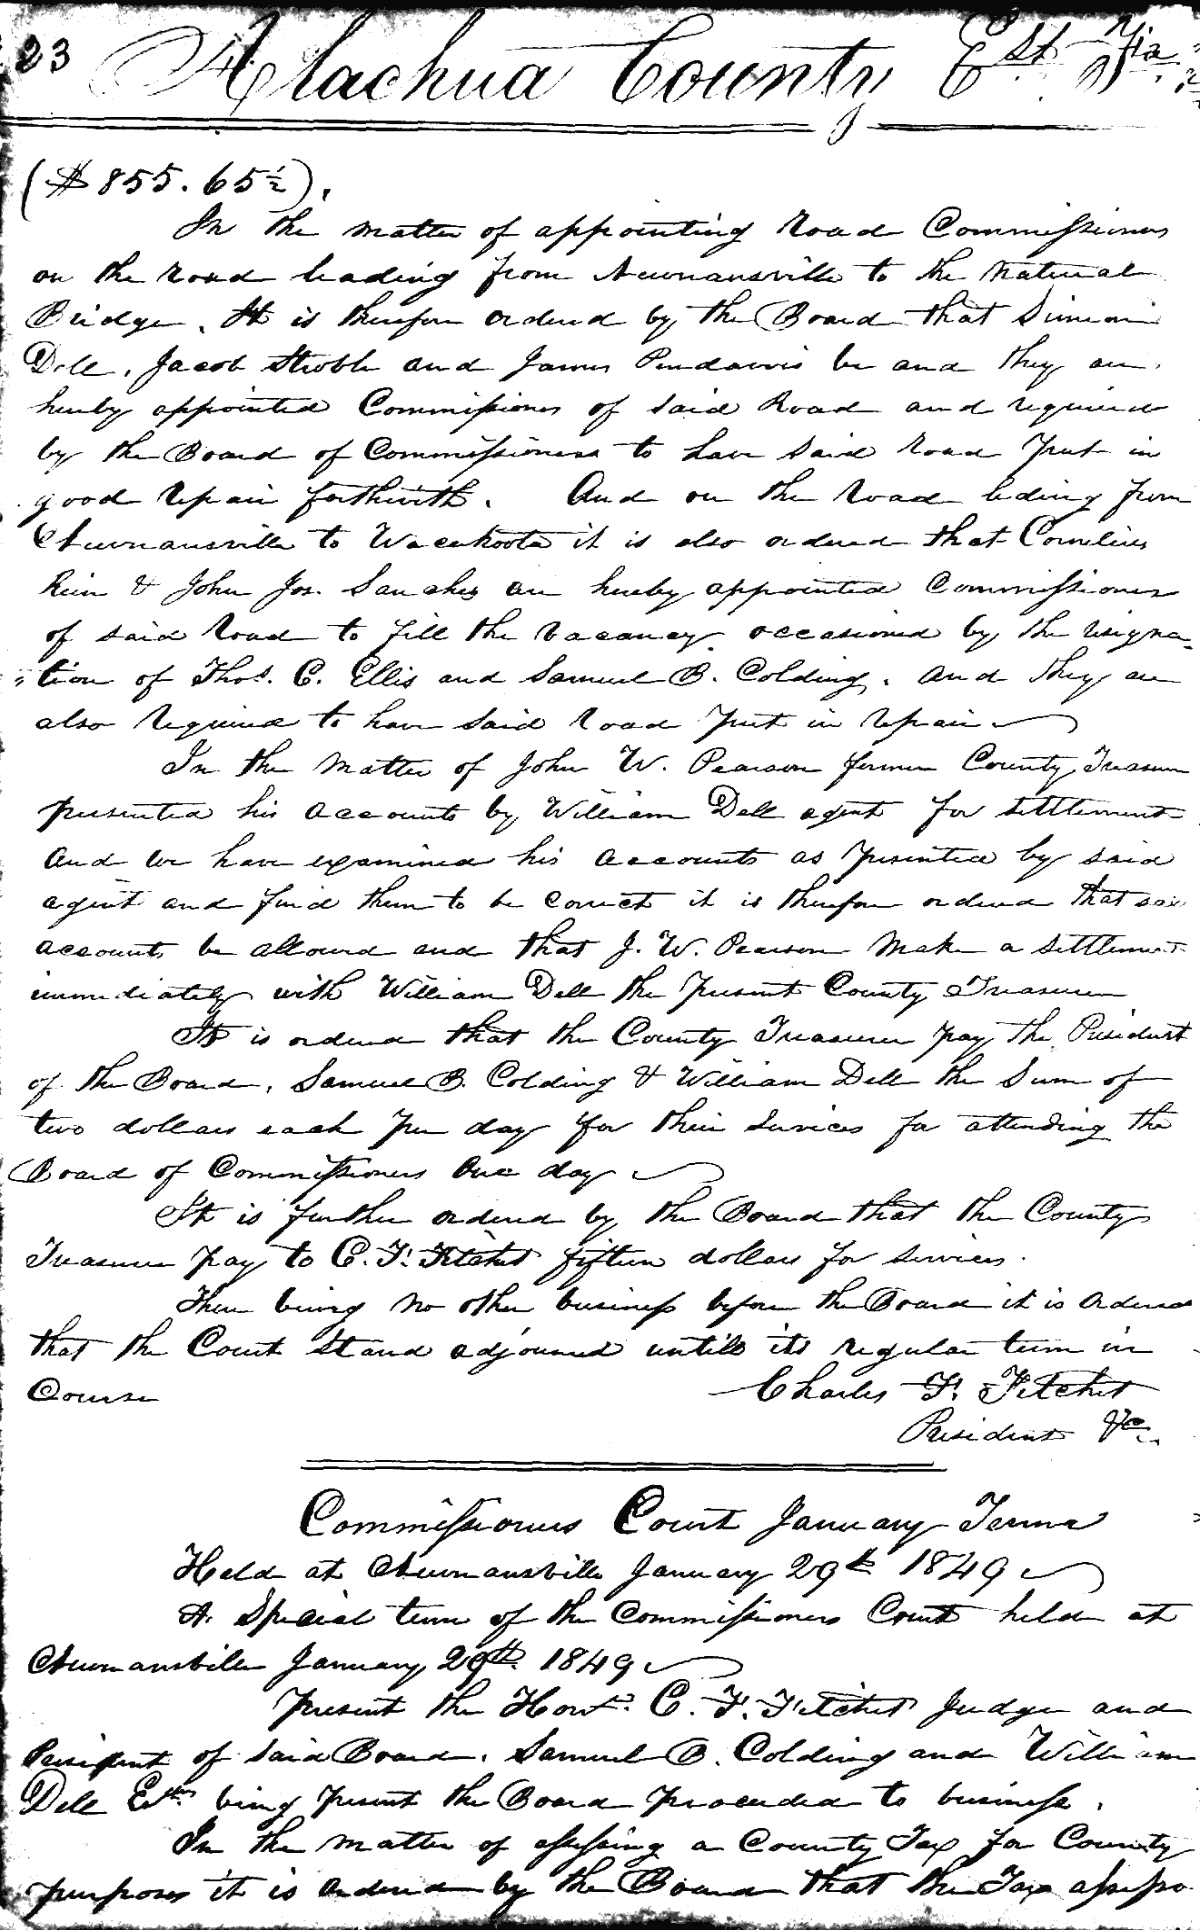 23 Alachua County Est Fla
($855.65½).
In the matter of appointing road Commissioners
on the road leading from Newnansville to the Natural
Bridge. It is therefore ordered by the Board that Simeon
Dell, Jacob Stroble and James Pendarvis be and they are
hereby appointed Commissioners of said Road and required
by the Board of Commissioners to have said road put in
good repair forthwith. And on the road leding from
Newnansville to Wacahoota it is also ordered that Cornelius
Rain & John Jos. Sanches are hereby appointed Commissioners
of said road to fill the vacancy occasioned by the resigna-
"tion of Thos. C. Ellis and Samuel B. Colding. And they are
also required to have said road put in repair
In the matter of John W. Pearson former County Treasurer
presented his accounts by William Dell agent for settlement
and we have examined his accounts as presented by said
agent and find them to be correct it is therefore ordered that said
accounts be allowed and that J. W. Pearson make a settlement
immediately with William Dell the present County Treasurer
It is ordered that the County Treasurer pay the President
of the Board, Samuel B. Colding & William Dell the Sum of
two dollars each per day for their services for attending the
Board of Commissioners One day
It is further ordered by the Board that the County
Treasurer pay to C. F. Fitchet fifteen dollars for services.
There being no other business before the Board it is ordered
that the Court stand adjourned untill its regular term in
Course Charles F. Fitchet
President &c.
Commissioners Court January Term
Held at Newnansville January 29th 1849
A Special term of the Commissioners Court held at
Newnansville January 29th 1849
Present the Hon. C. F. Fitchet Judge and
President of said Board. Samuel B. Colding and William
Dell Esqr. being present the Board proceeded to business.
In the matter of assessing a County Tax for County
purposes it is ordered by the Board that the Tax assesso